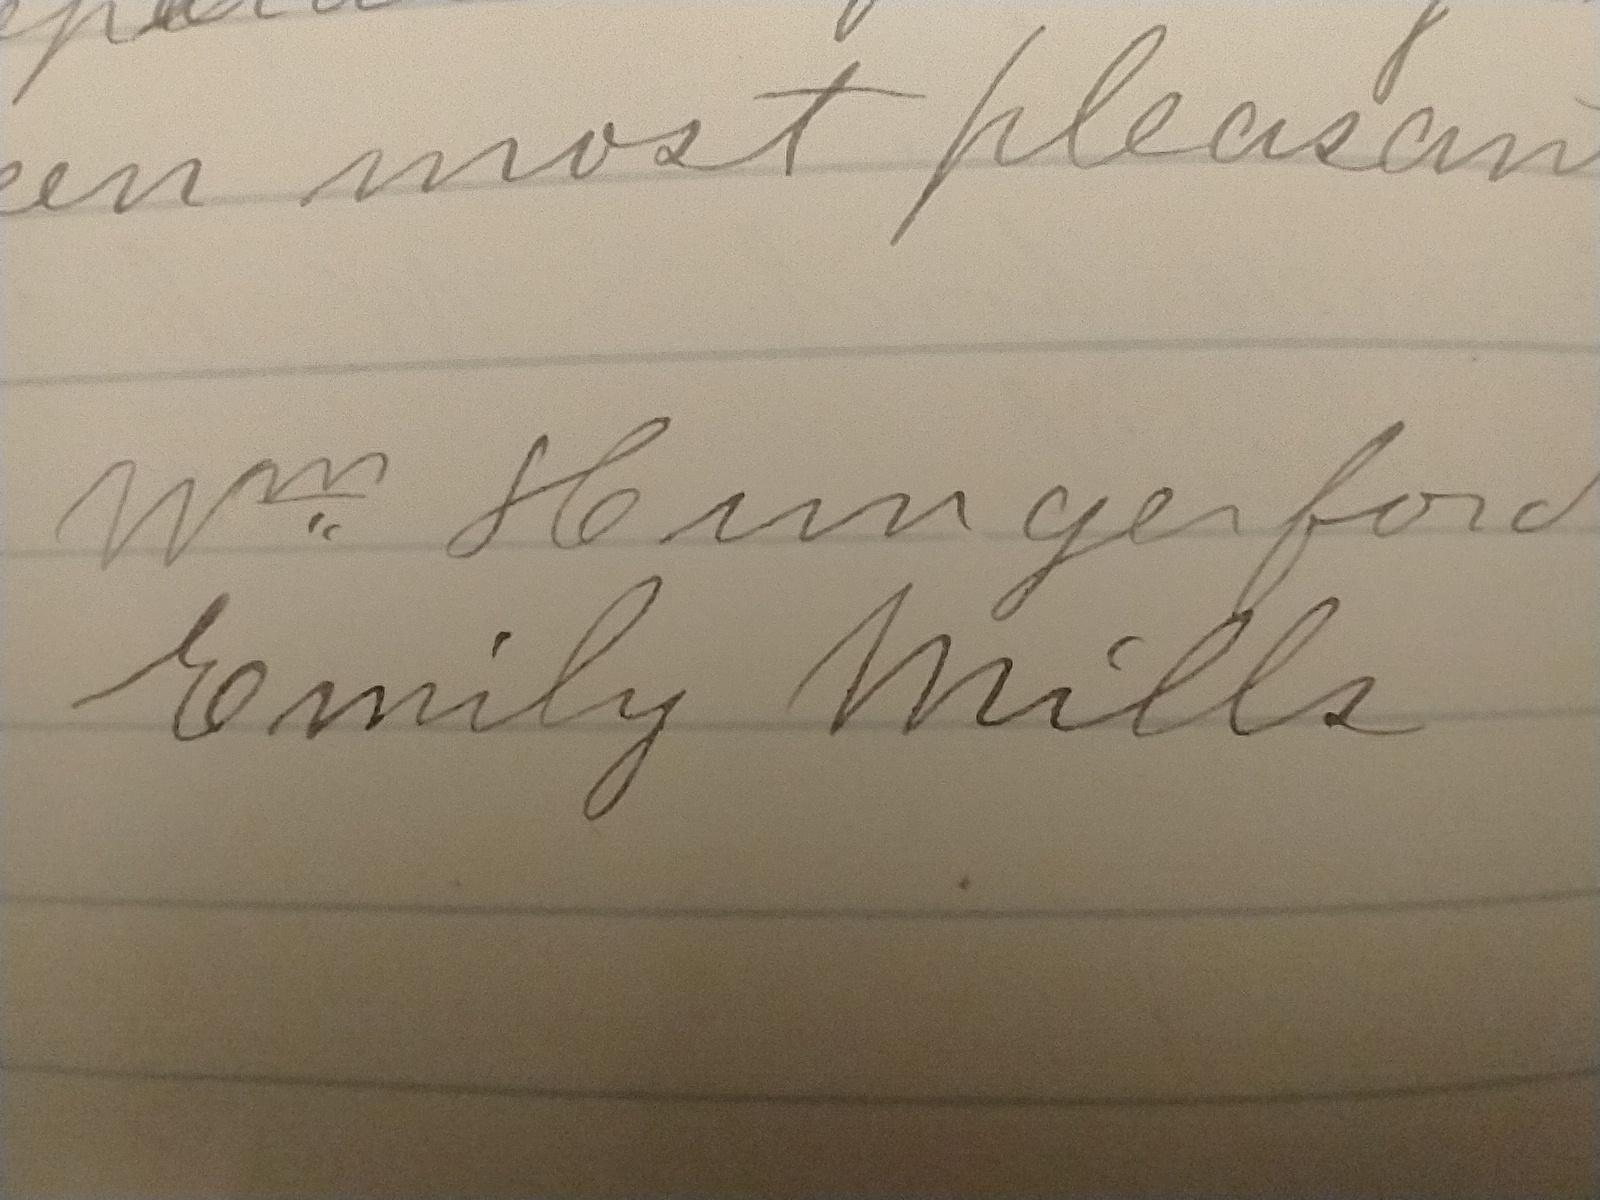 een most pleasant
Wm Hungerford
Emily Mills